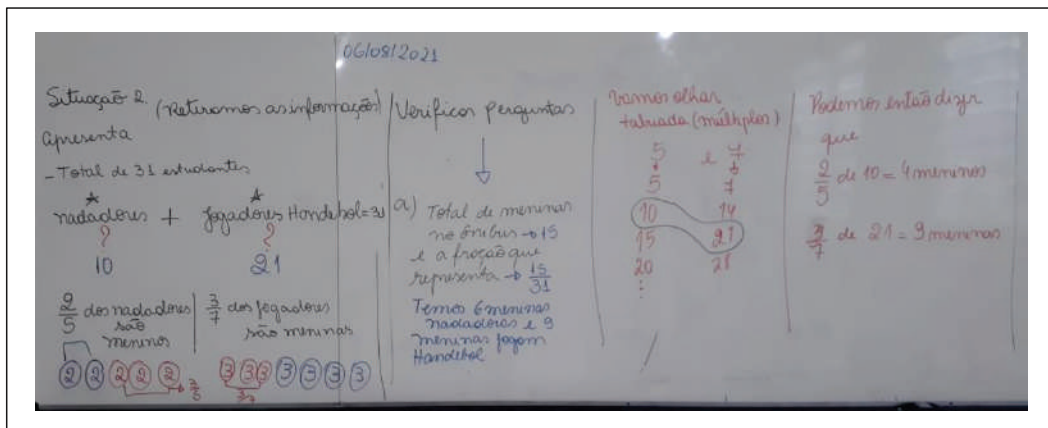 06/08/2021
Situação 2. (Retiramos as informações)
apresenta
- Total de 31 estudantes
nadadores + Jogadores Handebol = 31
? ?
10 21
2/5 dos nadadores são meninos
3/7 dos jogadores são meninas
2 2 2 2 2 3/5
3 3 3 3 3 3 3
3/7
Verificar perguntas
a) Total de meninas
no ônibus → 15
e a fração que
representa → 15/31
Temos 6 meninas
nadadoras e 9
meninas jogam
Handebol
Vamos olhar
tabuada (múltiplos)
5 e 7
5 7
10 14
15 21
20 28
⋮
Podemos então dizer
que
2/5 de 10 = 4 meninos
3/7 de 21 = 9 meninas